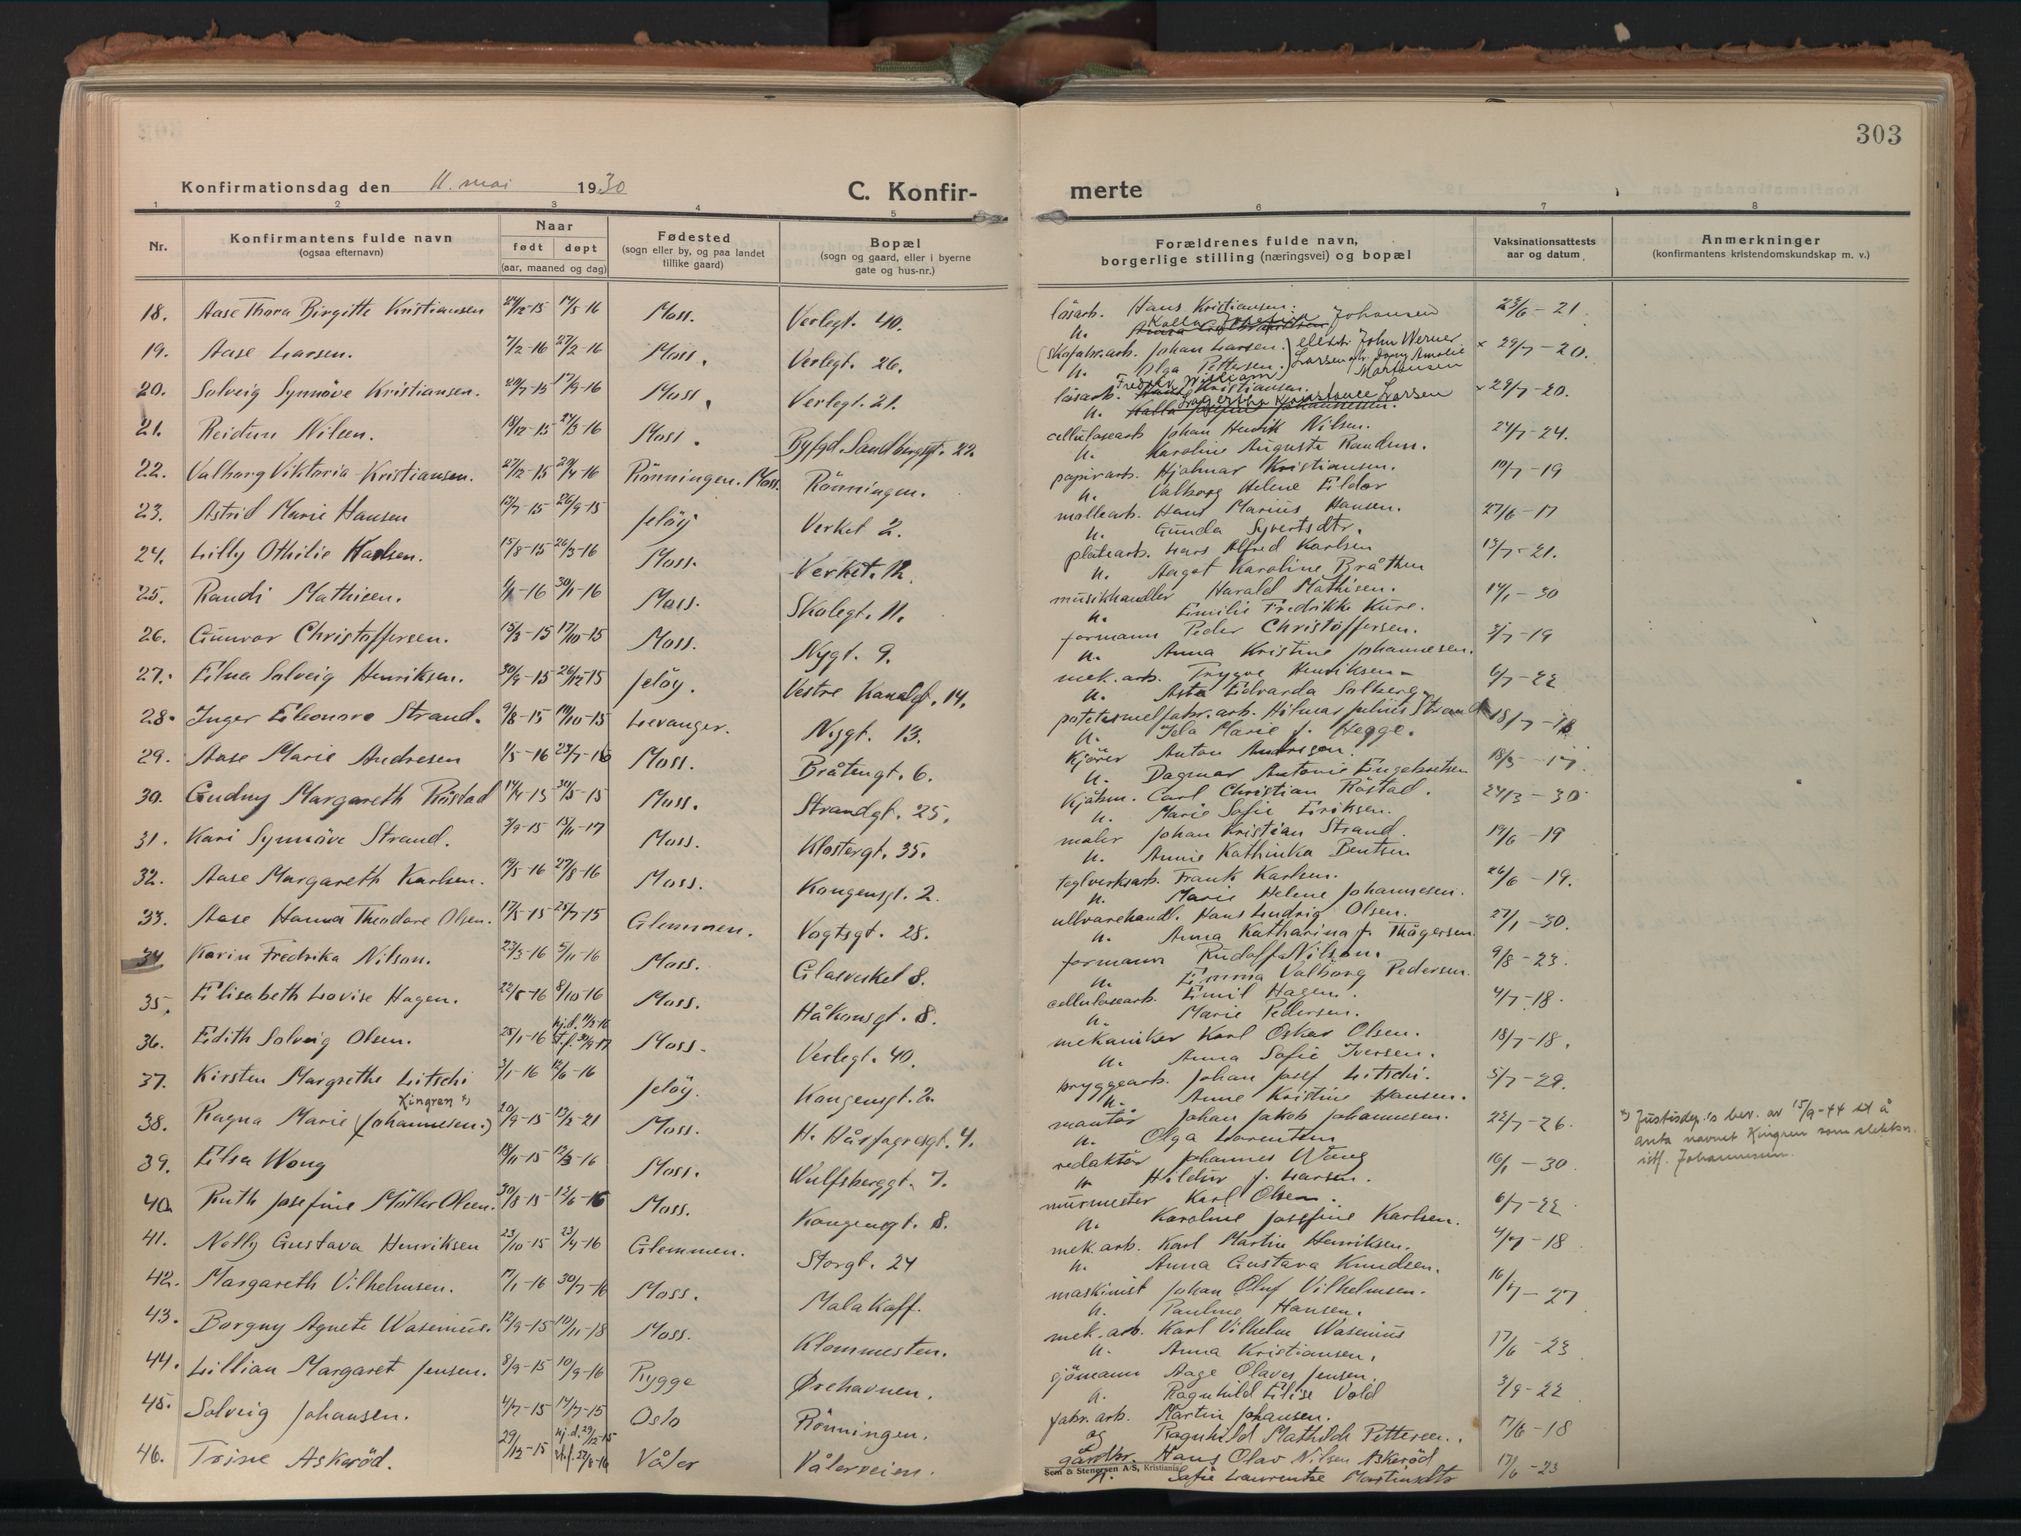 303
Konfirmationsdag den 11. mai 1930 C. Konfir- merte
1 2 3 4 5 6 7 8
Nr. Konfirmantens fulde navn (ogsaa efternavn) Naar født døpt (aar, maaned og dag) Fødested (sogn eller by, og paa landet tillike gaard) Bopæl (sogn og gaard, eller i byerne gate og hus-nr.) Forældrenes fulde navn, borgerlige stilling (næringsvei) og bopæl Vaksinationsattests aar og datum Anmerkninger (konfirmantens kristendomskundskap m. v.)
18. Aase Thora Birgitte Kristiansen 24/12-15 14/5-16 Moss. Verlegt. 40. løsarb. Hans Kristiansen. 23/6-21
u. Kalla Josefine Johansen
19. Aase Larsen. 7/2-16 27/2-16 Moss. Verlegt. 26. (skofabr.arb. Johan Larsen.) elektr. John Werner x 29/7-20.
u. Olga Pettersen. Larsen Amalie Martinsen
20. Solveig Synnöve Kristiansen. 20/7-15 17/9-16 Moss. Verlegt. 21. løsarb. Fredrik William Kristiansen. x 29/7-20.
u. Lagertha Konstanse Larsen
21. Reidun Nilsen. 18/12-15 24/3-16 Moss. Byfgd. Sandbergsgt. 22. cellulosearb. Johan Henrik Nilsen. 24/7-24.
u. Karoline Auguste Randun.
22. Valborg Viktoria Kristiansen. 27/12-15 29/4-16 Rönningen. Moss. Rönningen. papirarb. Hjalmar Kristiansen. 10/7-19
u. Valborg Helene Eldor
23. Astrid Marie Hansen 12/7-15 26/9-15 Jeløy Verket 2. møllearb. Hans Marius Hansen. 27/6-17
u. Gunda Syvertsdtr.
24. Lilly Othilie Karlsen. 15/8-15 26/3-16 Moss. Verket. 12. platearb. Lars Alfred Karlsen 13/7-21.
u. Aagot Karoline Bråthen
25. Randi Mathisen. 4/1-16 30/1-16 Moss. Skolegt. 11. musikkhandler Harald Mathisen. 14/1-30
u. Emilie Fredrikke Kure.
26. Gunvor Christoffersen. 15/3-15 17/10-15 Moss. Nygt. 9. formann Peder Christoffersen. 3/7-19
u. Anna Kristine Johannesen.
27. Elna Solveig Henriksen. 30/9-15 26/12-15 Jeløy. Vestre Kanalgt. 14. mek. arb. Trygve Henriksen 6/7-22
u. Asta Edvarda Solberg.
28. Inger Eleonore Strand. 9/8-15 10/10-15 Levanger. Nygt. 13. potetesmelfabr. arb. Hilmar Julius Strand 18/7-18
u. Ida Marie f. Hegge.
29. Aase Marie Andresen 1/5-16 23/7-16 Moss. Bråtengt. 6. Kjører Anton Andresen. 18/3-17
u. Dagmar Antonie Engebretsen
30. Gudny Margareth Röstad 14/4-15 30/5-15 Moss. Strandgt. 25. Kjøbm. Carl Christian Röstad. 24/3-30
u. Marie Sofie Eriksen.
31. Kari Synnöve Strand. 3/9-15 15/11-17 Moss. Klostergt. 35. maler Johan Kristian Strand. 19/6-19
u. Annie Kathinka Bentsen
32. Aase Margareth Karlsen. 19/5-16 27/8-16 Moss. Kongensgt. 2. teglverksarb. Frank Karlsen. 26/6-19.
u. Marie Helene Johannesen.
33. Aase Hanna Theodore Olsen. 17/5-15 25/7-15 Glemmen. Vogtsgt. 28. ullvarehandl. Hans Ludvig Olsen. 27/1-30.
u. Anna Katharina f. Thögersen
34 Karin Fredrika Nilson. 23/3-16 5/11-16 Moss. Glasverket 8. formann Rudolf Nilson. 9/8-23.
u. Emma Valborg Pedersen.
35. Elisabeth Lovise Hagen. 22/8-16 8/10-16 Moss. Håkonsgt. 8. cellulosearb. Emil Hagen. 4/7-18.
u. Marie Pedersen.
36. Edith Solveig Olsen. 25/1-16 hj.d. 11/3-16 st.f. 30/9-17 Moss. Verlegt. 40. mekaniker Karl Oskar Olsen. 18/7-18.
u. Anna Sofie Iversen.
37. Kirsten Margrethe Litschi 3/1-16 12/6-16 Jeløy. Kongensgt. 2. bryggearb. Johan Josef Litschi. 5/7-29.
u. Anne Kristine Hansen.
38. Ragna Marie (Johannesen.) Kingren x) 20/9-15 13/2-21 Moss. H. Håsfagresgt. 4. montør Johan Jakob Johannesen. 22/7-26.
u. Olga Laurentsen
x) Justisdep.s bev. av 15/9-44 til å
anta navnet Kingren som slektsn.
istf. Johannessen.
39. Elsa Wong 18/11-15 12/3-16 Moss. Wulfsberggt. 7. redaktør Johannes Wong 16/1-30.
u. Hildur f. Larsen.
40. Ruth Josefine Möller Olsen. 30/8-15 12/6-16 Moss. Kongensgt. 8. murmester Karl Olsen. 6/7-22
u. Karoline Josefine Karlsen.
41. Nelly Gustava Henriksen 23/10-15 23/4-16 Glemmen. Storgt. 24 mek. arb. Karl Martin Henriksen. 4/7-18
u. Anna Gustava Knudsen.
42. Margareth Vilhelmsen. 17/1-16 30/7-16 Moss. Malakoff. maskinist Johan Oluf Vilhelmsen. 16/7-27
u. Pauline Hansen.
43. Borgny Agnete Wasenius. 12/9-15 10/11-18 Moss. Klommesten. mek. arb. Karl Vilhelm Wasenius 17/6-23
u. Anna Kristiansen.
44. Lillian Margaret Jensen. 8/9-15 10/9-16 Rygge Ørehavnen. gjömann Aage Olaves Jensen. 3/9-22
u. Ragnhild Elise Vold
45. Solveig Johansen. 4/7-15 14/7-15 Oslo Rönningen. fabr. arb. Martin Johansen. 17/6-18
og Ragnhild Mathilde Pettersen.
46. Trine Askeröd. 29/12-15 hj.d. 29/12-15 st.f. 27/8-16 Våler Vålerveien. gårdbr. Hans Olav Nilsen Askeröd 17/6-23
u. Sofie Laurentze Martinsdtr
Sem & Stenersen A/S, Kristiania